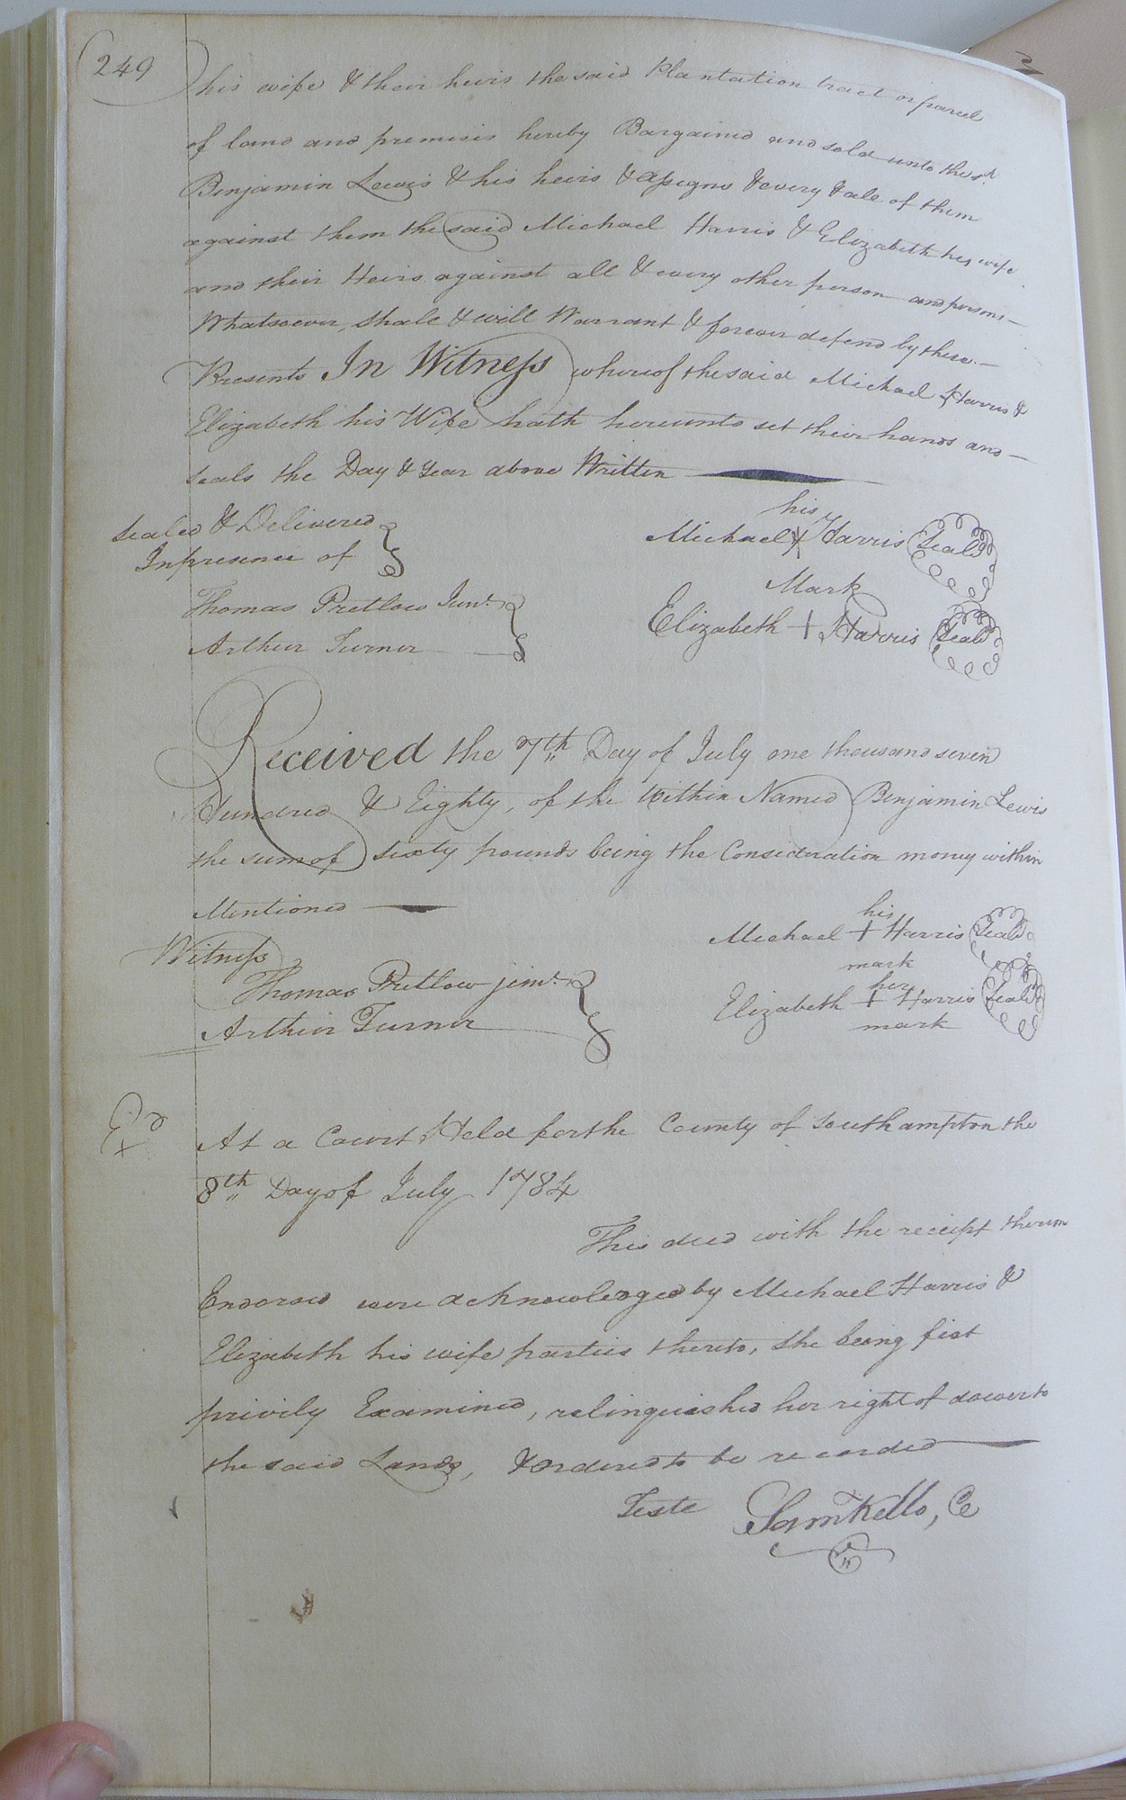 249
his wife & their heirs the said Plantation tract or parcel
of land and premisis hereby Bargained and sold unto the sd.
Benjamin Lewis & his heirs & assigns & every & all of them
against them the said Michael Harris & Elizabeth his wife
and their Heirs against all & every other person and persons
Whatsoever, shall & will Warrant & forever defend by these
Presents In Witness whereof the said Michael Harris &
Elizabeth his Wife hath hereunto set their hands and
seals the Day & Year above Written
Sealed & Delivered
Inpresence of
Thomas Pretlow Junr.
Arthur Turner
his
Michael + Harris Seal
Mark
Elizabeth + Harris Seal
Received the 7th Day of July one thousand seven
Hundred & Eighty, of the Within Named Benjamin Lewis
the sum of sixty pounds being the Consideration money within
Mentioned
Witness
Thomas Pretlow junr.
Arthur Turner
his
Michael + Harris Seal
mark
her
Elizabeth + Harris Seal
mark
Exd
At a Court Held for the County of Southampton the
8th Day of July 1784
This deed with the receipt thereon
Endorsed were acknowledged by Michael Harris &
Elizabeth his wife parties thereto, she being fist
privily Examined, relinquished her right of dower to
the said Lands, & ordered to be recorded
Teste Saml Kello, C